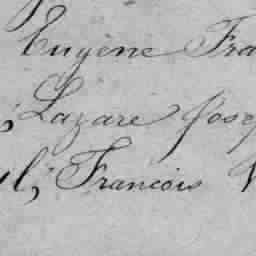 Eugène Fra
; Lazare Josep
ul; Francois